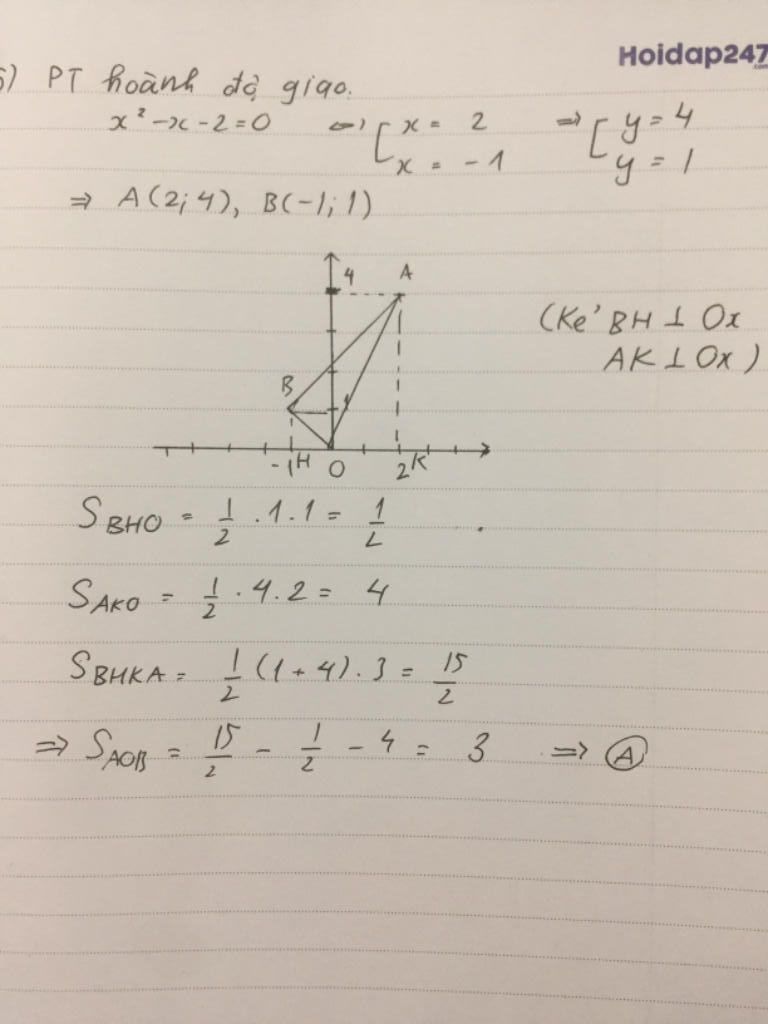 Hoidap247
.com
5) PT hoành độ giao.
x² - x - 2 = 0 ⇔ [ x = 2 ⇒ [ y = 4
x = -1 y = 1
⇒ A(2; 4), B(-1; 1)
4 A
(Kẻ BH ⊥ Ox
AK ⊥ Ox)
B 1
-1 H O 2 K
S_BHO = 1/2 . 1 . 1 = 1/2
S_AKO = 1/2 . 4 . 2 = 4
S_BHKA = 1/2 (1 + 4) . 3 = 15/2
⇒ S_AOB = 15/2 - 1/2 - 4 = 3 ⇒ Ⓐ